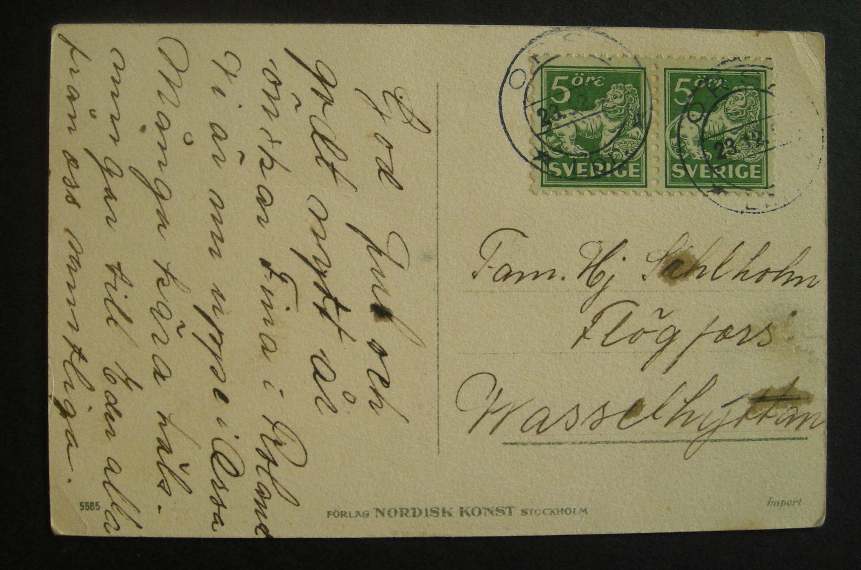 God Jul och
godt nytt år
önskar Tina i Roland
Vi är nu uppe i Orsa
Många kära häls-
ningar till Eder alla
från oss samtliga.
5 öre
SVERIGE
5 öre
SVERIGE
23.12
Fam. Hj Sahlholm
Flögfors
Wasselhyttan
5585
FÖRLAG NORDISK KONST STOCKHOLM
Import